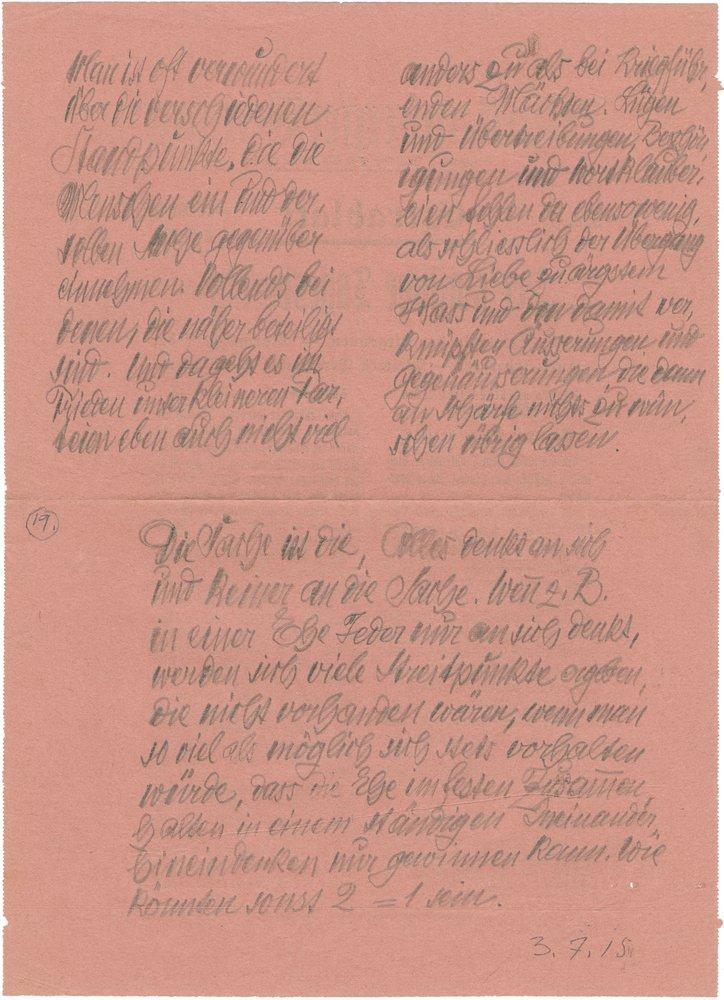 Man ist oft verwundert
über die verschiedenen
Standpunkte, die die
Menschen ein und der
selben Sache gegenüber
einnehmen. Vollends bei
denen, die näher beteiligt
sind. Und da geht es im
Frieden unter kleineren Par,
teien eben auch nicht viel
anders zu als bei Kriegführ,
enden Mächten. Lügen
und Übertreibungen, Bezhür
igungen und Wortklauber,
eien fehlen da ebensowenig,
als schliesslich der Übergang
von Liebe zu ärgstem
Hass und den damit ver,
knüpften Äusserungen und
Gegenäusserungen die dann
an Schärfe nichts zu wün,
schen übrig lassen.
19.
Die Sache ist die, Alles denkt an sich
und Keiner an die Sache. Wen̄ z. B.
in einer Ehe Jeder nur an sich denkt,
werden sich viele Streitpunkte ergeben,
die nicht vorhanden wären, wenn man
so viel als möglich sich stets vorhalten
würde, dass die Ehe im festen Zusam̄en
halten in einem ständigen Ineinander
hineindenken nur gewinnen kann. Wie
könnten sonst 2 = 1 sein.
3. 7. 15